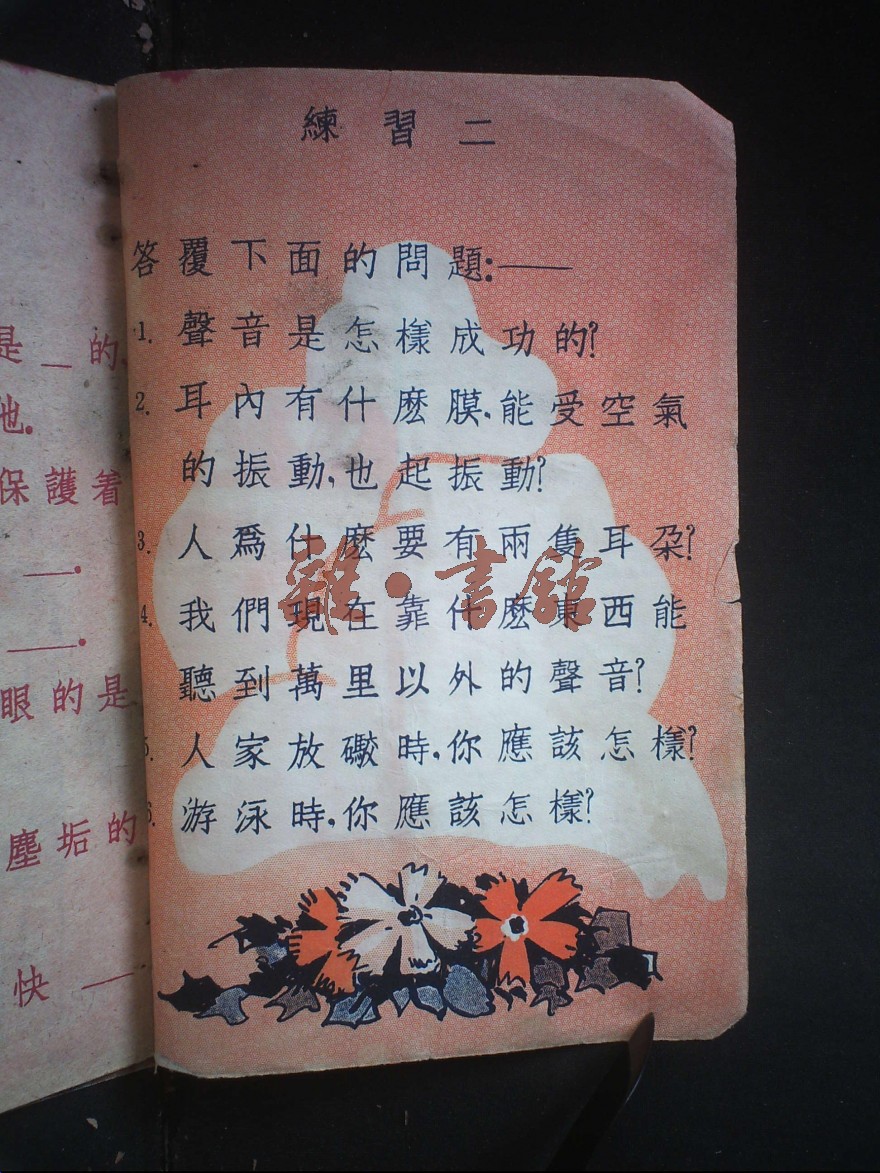 練習二
答覆下面的問題:——
1. 聲音是怎樣成功的?
2. 耳內有什麽膜,能受空氣
的振動,也起振動?
3. 人爲什麽要有兩隻耳朶?
4. 我們現在靠什麽東西能
聽到萬里以外的聲音?
5. 人家放礮時,你應該怎樣?
6. 游泳時,你應該怎樣?
是__的,
他.
保護着
__.
__.
眼的是
塵垢的
快__
雜·書館